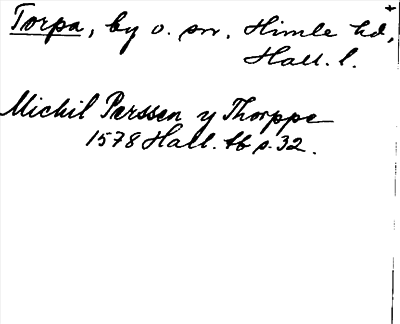 Torpa, by o. sn, Himle hd,
Hall. l.
Michil Perssen y Thorppe
1578 Hall. tb s. 32.